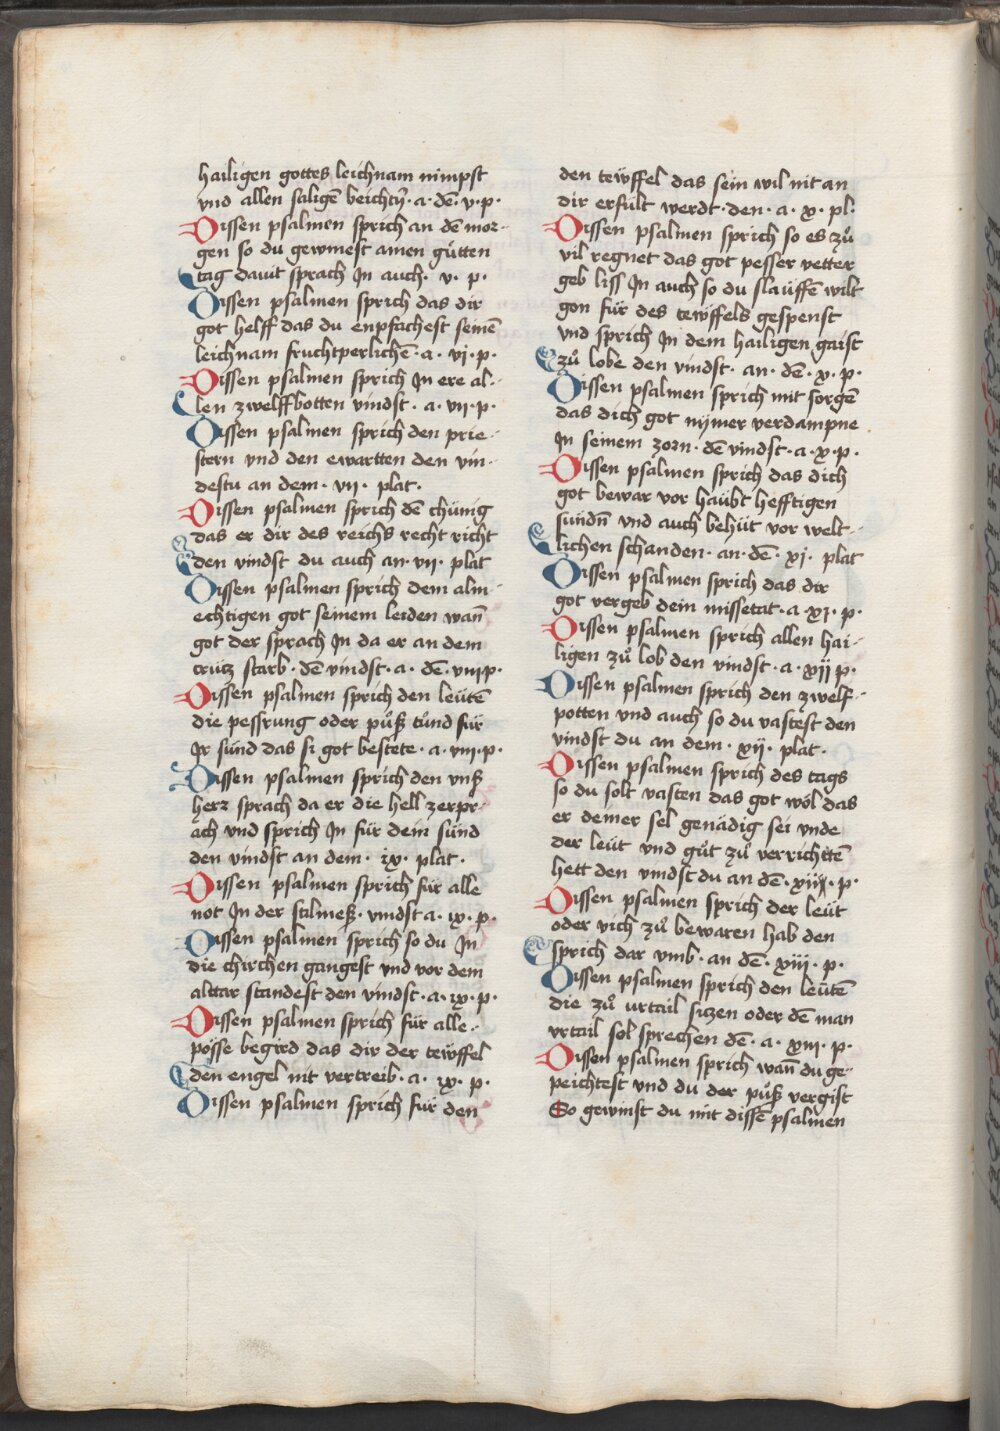 hailigen gottes leichnam nimpst
vnd allen saligē beichtȳ · a · dē · v · p ·
Dissen psalmen sprich an dē mor-
gen so du gewinest ainen gůtten
tag dauit sprach Jn auch · v · p ·
Dissen psalmen sprich das dir
got helff das du enpfachest seinē
leichnam fruchtperlichē · a · vj · p ·
Dissen psalmen sprich Jn ere al-
len zwelffbotten vindst · a · vii · p ·
Dissen psalmen sprich den prie-
stern vnd den ewartten den vin-
destu an dem · vii · plat ·
Dissen psalmen sprich dē chünig
das er dir des reichs recht richt
den vindst du auch an · vii · plat
Dissen psalmen sprich dem alm-
echtigen got seinem leiden wan̄
got der sprach Jn da er an dem
crütz starb · dē vindst · a · dē · viii p ·
Dissen psalmen sprich den leütē
die pessrung oder půß tůnd für
Jr sünd das si got bestete · a · viii · p ·
Dissen psalmen sprich den vnß
herz sprach da er die hell zerpr-
ach vnd sprich Jn für dein sünd
den vindst an dem · ix · plat ·
Dissen psalmen sprich für alle
not Jn der stilmeß · vindst a · ix · p ·
Dissen psalmen sprich so du Jn
die chirchen gangest vnd vor dem
alttar standest den vindst · a · ix · p ·
Dissen psalmen sprich für alle
pösse begird das dir der tewffel
den engel nit vertreib · a · ix · p ·
Dissen psalmen sprich für den
den tewffel das sein wil nit an
dir erfült werdt · den · a · x · pl ·
Dissen psalmen sprich so es zů
vil regnet das got pesser vetter
geb liss Jn auch so du slauffē wilt
gon für des tewffels gespenst
vnd sprich Jn dem hailigen gaist
zů lobe den vindst · an · dē · x · p ·
Dissen psalmen sprich mit sorgē
das dich got nymer verdampne
Jn seinem zorn · dē vindst · a · x · p ·
Dissen psalmen sprich das dich
got bewar vor haübt hefftigen
sündn̄ vnd auch behüt vor welt-
lichen schanden · an · dē · xj · plat
Dissen psalmen sprich das dir
got vergeb dein missetat · a · xi · p ·
Dissen psalmen sprich allen hai-
ligen zů lob den vindst · a · xij p ·
Dissen psalmen sprich den zwelf-
potten vnd auch so du vastest den
vindst du an dem · xij · plat ·
Dissen psalmen sprich des tags
so du solt vasten das got wöl das
er deiner sel genädig sei vnde
der leüt vnd gůt zů verrichttē
hett den vindst du an dē · xiij · p ·
Dissen psalmen sprich der leüt
oder vich zů bewaren hab den
sprich dar vmb · an dē · xiii · p ·
Dissen psalmen sprich den leütē
die zů vrtail sizen oder dē man
vrtail sol sprechen dē · a · xiii · p ·
Dissen psalmen sprich wan̄ du ge-
peichtest vnd du der půß vergist
So gewinst du mit dissē psalmen